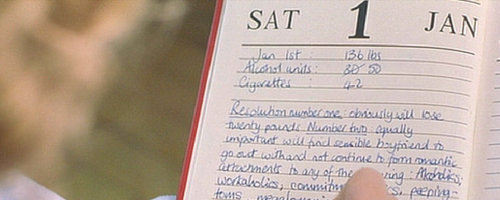 SAT 1 JAN
Jan 1st : 136 lbs
Alcohol units : 50
Cigarettes : 42
Resolution number one: obviously will lose
twenty pounds Number two equally
important will find sensible boyfriend to
go out with and not continue to form romantic
attachments to any of the Alcoholics,
workaholics, peeping-
toms